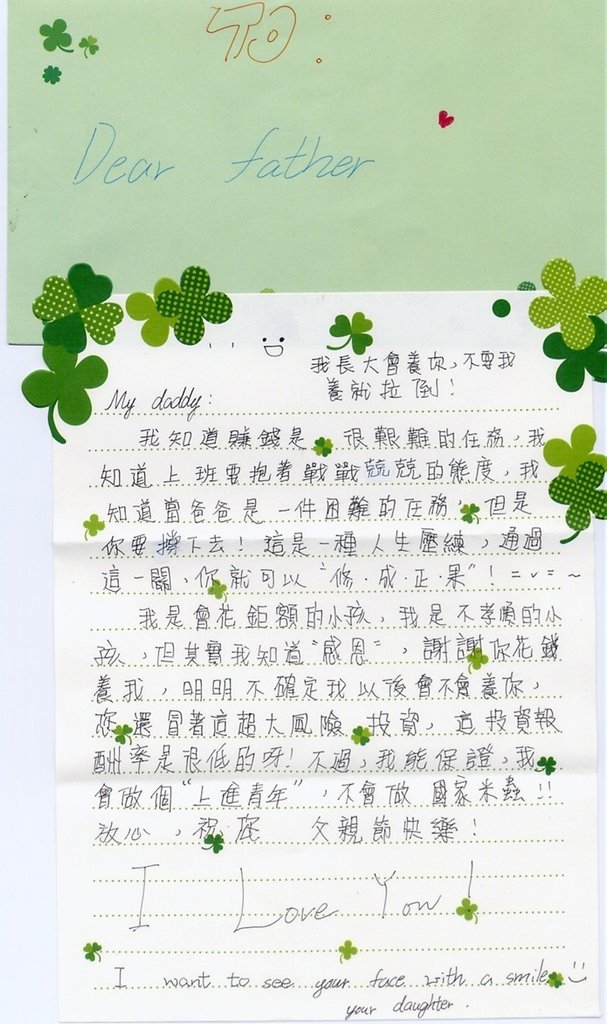 TO:
Dear father
我長大會養你,不要我
養就拉倒!
My daddy:
我知道賺錢是 很艱難的任務,我
知道上班要抱著戰戰兢兢的態度,我
知道當爸爸是一件困難的任務,但是
你要撐下去!這是一種人生歷練,通過
這一關,你就可以"修.成.正.果"! =v=~
我是會花鉅額的小孩,我是不孝順的小
孩,但其實我知道"感恩",謝謝你花錢
養我,明明不確定我以後會不會養你,
您還冒著這超大風險 投資,這投資報
酬率是很低的呀!不過,我能保證,我
會做個"上進青年",不會做 國家米蟲!!
放心,祝您 父親節快樂!
I Love You!
I want to see your face with a smile
your daughter.